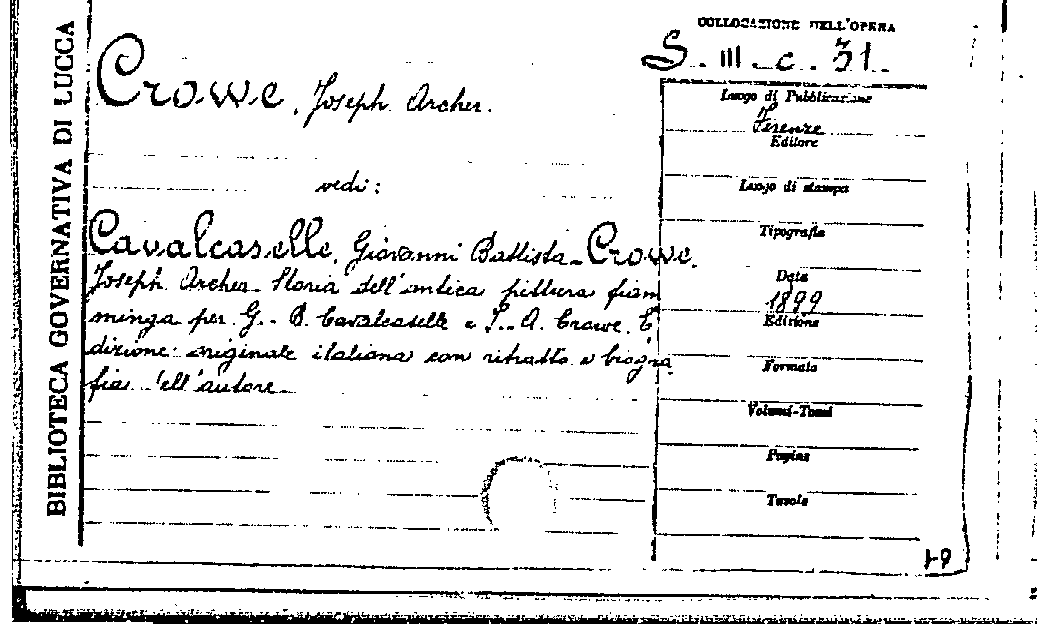 BIBLIOTECA GOVERNATIVA DI LUCCA
COLLOCAZIONE DELL'OPERA
S. III. c. 31.
Crowe, Joseph Archer.
vedi:
Cavalcaselle, Giovanni Battista-Crowe,
Joseph Archer-Storia dell'antica pittura fiam
minga per G. B. Cavalcaselle e J. A. Crowe. E
dizione originale italiana con ritratto e biogra
fia dell'autore
Luogo di Pubblicazione
Firenze
Editore
Luogo di stampa
Tipografia
Data
1899
Edizione
Formato
Volumi-Tomi
Pagine
Tavole